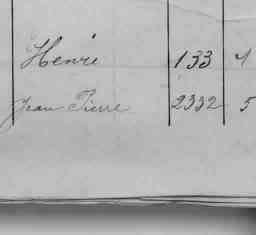 Henri 133 4
Jean Pierre 2332 5